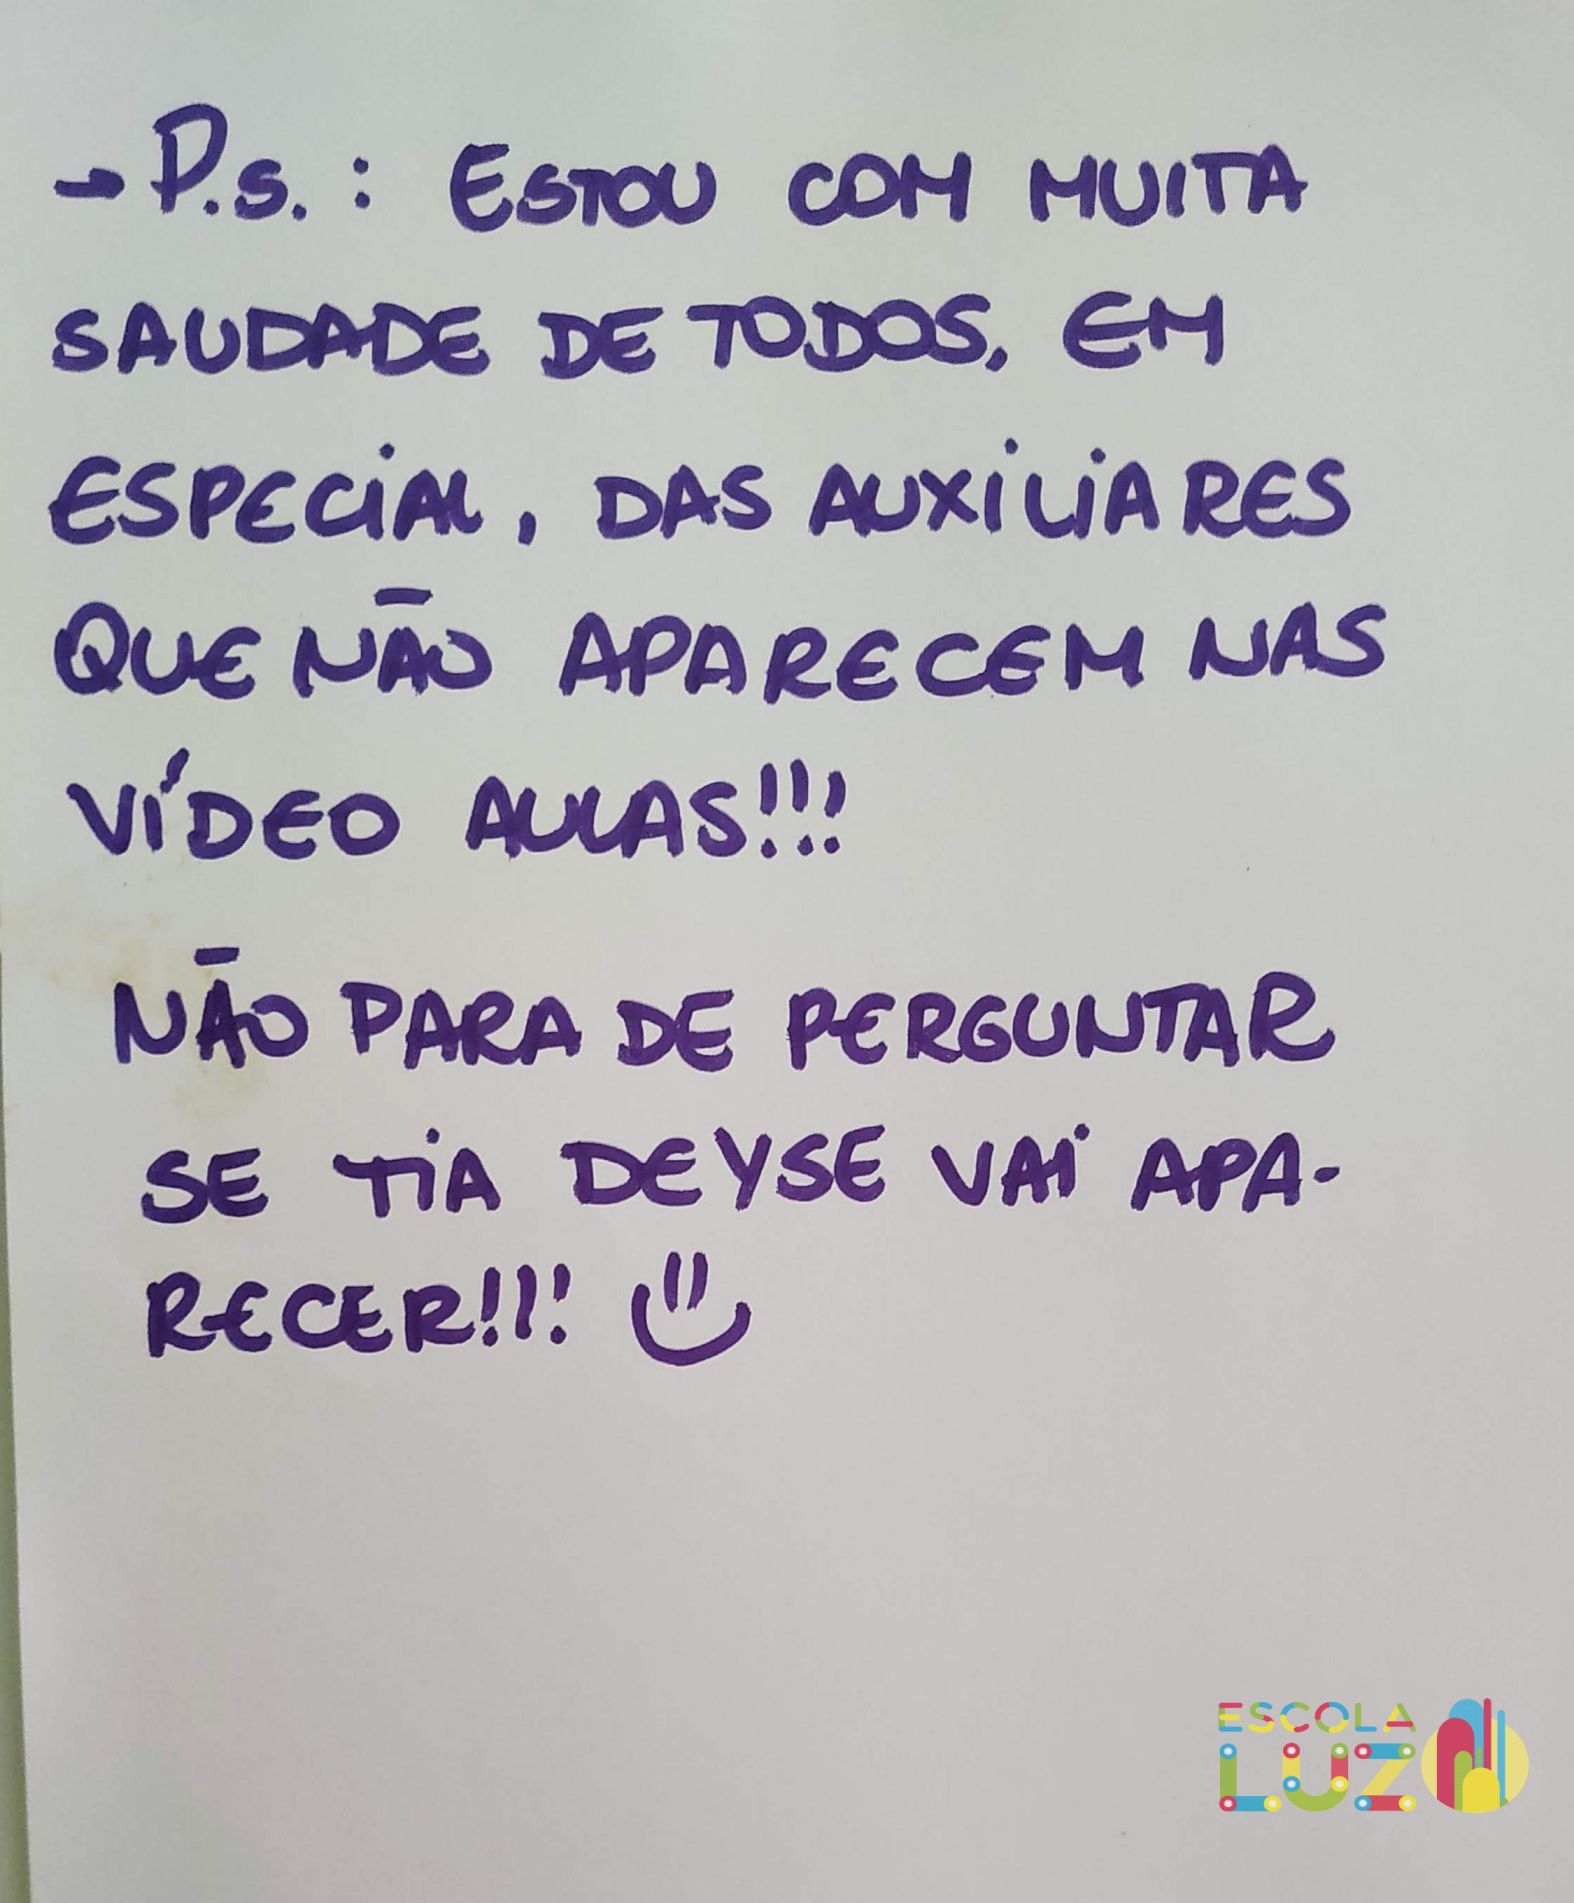 → P.S.: ESTOU COM MUITA
SAUDADE DE TODOS. EM
ESPECIAL, DAS AUXILIARES
QUE NÃO APARECEM NAS
VÍDEO AULAS!!!
NÃO PARA DE PERGUNTAR
SE TIA DEYSE VAI APA-
RECER!!!
ESCOLA
LUZ